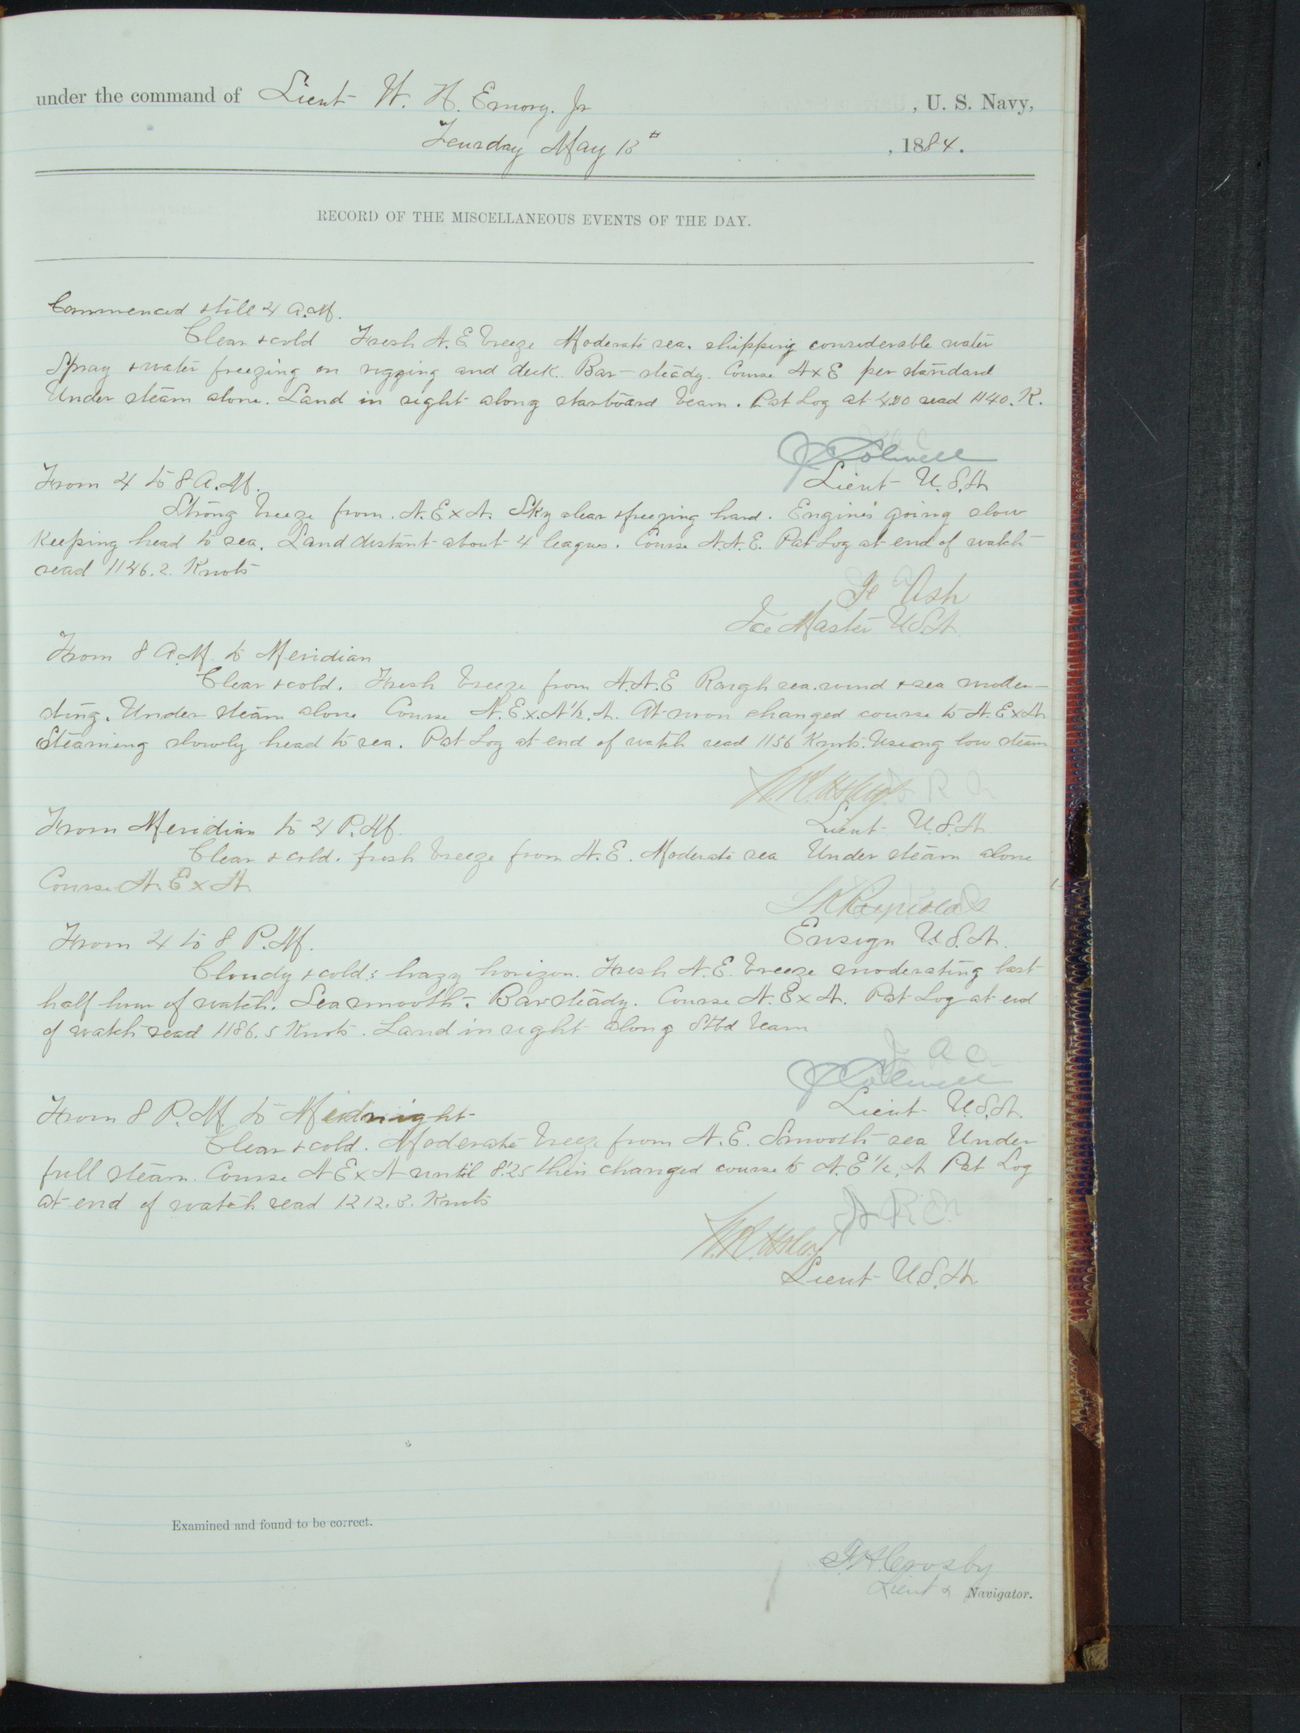 under the command of Lieut W. H. Emory. Jr , U. S. Navy,
Teusday May 13th , 1884.
RECORD OF THE MISCELLANEOUS EVENTS OF THE DAY.
Commenced & till 4 A.M.
Clear & cold Fresh N.E breeze Moderate sea. shipping considerable water
Spray & water freezing on rigging and deck. Bar— steady. Course NxE per standard
Under steam alone. Land in sight along starboard beam. Pat Log at 4.00 read 1140. K.
J C Colwell
Lieut U.S.N
From 4 to 8 A.M.
Strong breeze from N.ExN. Sky clear & freezing hard. Engines going slow
Keeping head to sea. Land distant about 4 leagues. Course N.N.E. Pat Log at end of watch
read 1146.2. Knots
Ash
Ice Master U.S.N.
From 8 A.M to Meridian
Clear & cold. Fresh breeze from N.N.E Rough sea. wind & sea moder—
ating. Under steam alone Course N.E.x.N½.N. At noon changed course to N.ExN
Steaming slowly head to sea. Pat Log at end of watch read 1156 Knots. Useing low steam
Lieut U.S.N.
From Meridian to 4 P.M.
Clear & cold. fresh breeze from N.E. Moderate sea Under steam alone
Course N.ExN.
Reynolds
Ensign U.S.N.
From 4 to 8 P.M.
Cloudy & cold: hazy horizon. Fresh N.E. breeze moderating last
half hour of watch. Sea smooth. Bar steady. Course N.ExN. Pat Log at end
of watch read 1186.5 Knots. Land in sight along Stbd beam
J C Colwell
Lieut U.S.N.
From 8 P.M to Midnight
Clear & cold. Moderate breeze from N.E. Smooth sea Under
full steam. Course N ExN until 8.25 then changed course to N.E½.N Pat Log
at end of watch read 1212.3. Knots
Lieut U.S.N
Examined and found to be correct.
Crosby
Lieut & Navigator.